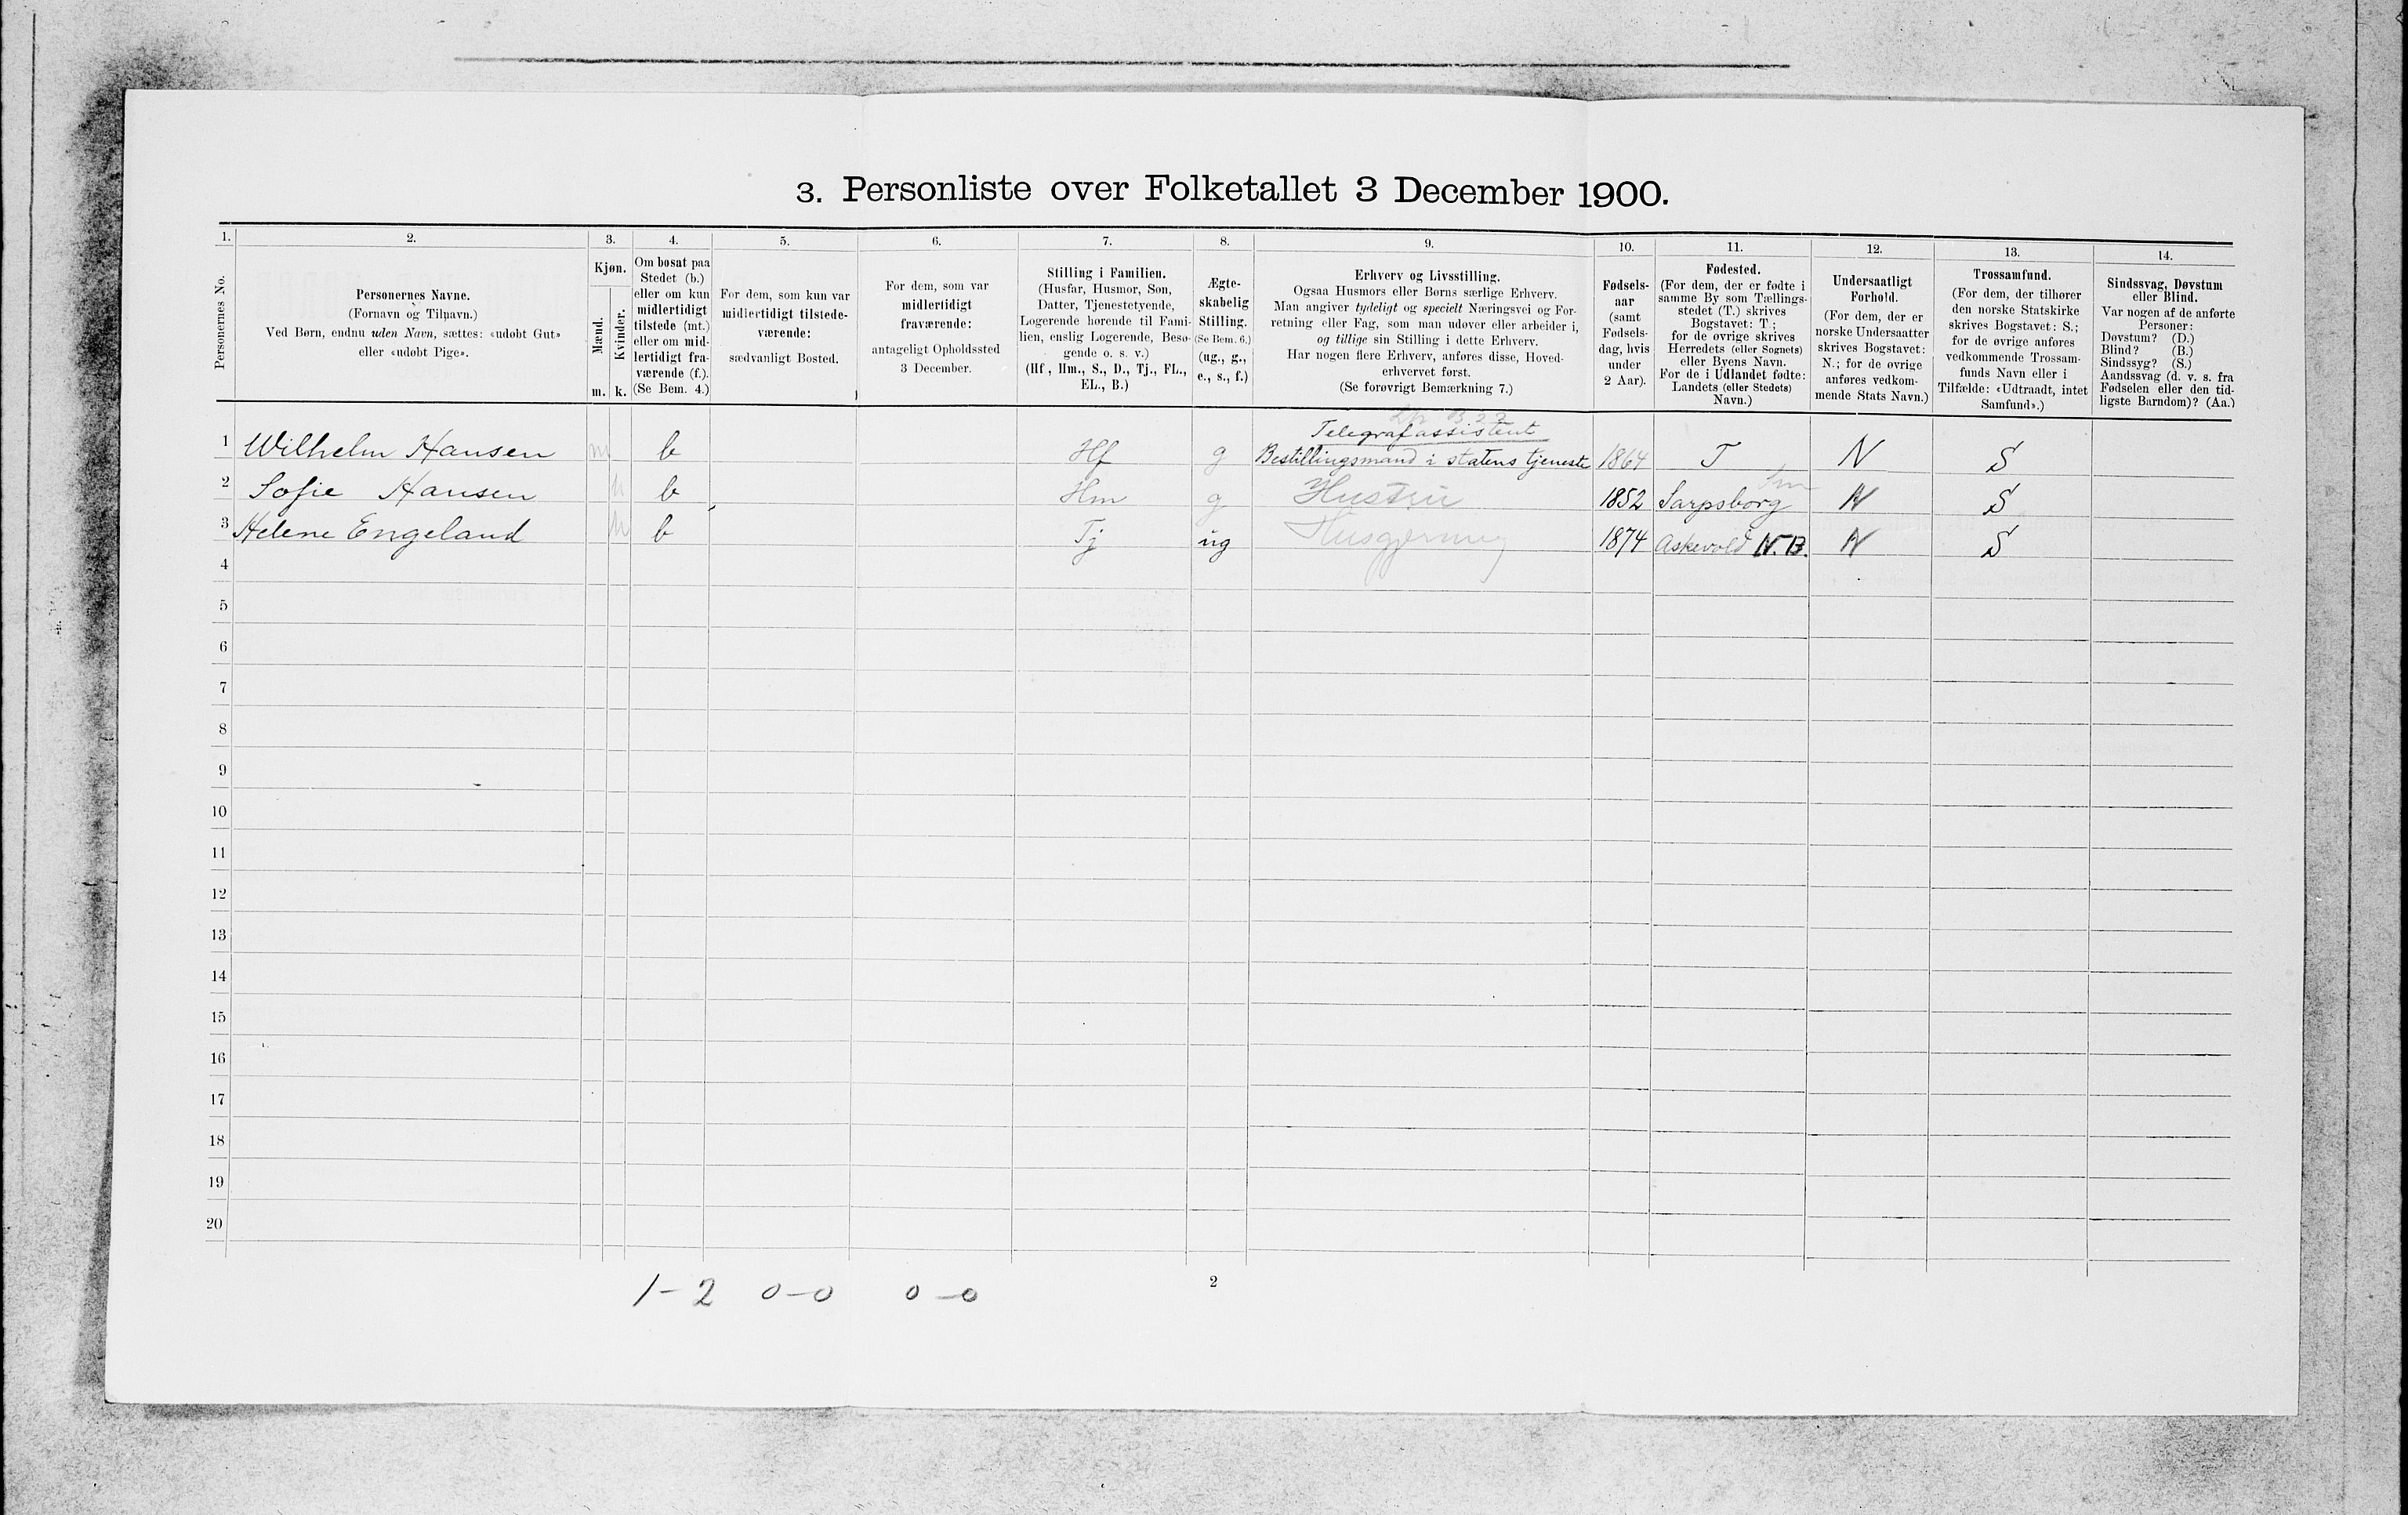 3. Personliste over Folketallet 3 December 1900.
1. 2. 3. 4. 5. 6. 7. 8. 9. 10. 11. 12. 13. 14.
Personernes No.
Personernes Navne.
(Fornavn og Tilnavn.)
Ved Børn, endnu uden Navn, sættes: «udøbt Gut»
eller «udøbt Pige».
Kjøn.
Mænd.
Kvinder.
m. k.
Om bosat paa
Stedet (b.)
eller om kun
midlertidigt
tilstede (mt.)
eller om mid-
lertidigt fra-
værende (f.).
(Se Bem. 4.)
For dem, som kun var
midlertidigt tilstede-
værende:
sædvanligt Bosted.
For dem, som var
midlertidigt
fraværende:
antageligt Opholdssted
3 December.
Stilling i Familien.
(Husfar, Husmor, Søn,
Datter, Tjenestetyende,
Logerende hørende til Fami-
lien, enslig Logerende, Besø-
gende o. s. v.)
(Hf., Hm., S., D., Tj., FL.,
EL., B.)
Ægte-
skabelig
Stilling.
(Se Bem. 6.)
(ug., g.,
e., s., f.)
Erhverv og Livsstilling.
Ogsaa Husmors eller Børns særlige Erhverv.
Man angiver tydeligt og specielt Næringsvei og For-
retning eller Fag, som man udøver eller arbeider i,
og tillige sin Stilling i dette Erhverv.
Har nogen flere Erhverv, anføres disse, Hoved-
erhvervet først.
(Se forøvrigt Bemærkning 7.)
Fødsels-
aar
(samt
Fødsels-
dag, hvis
under
2 Aar).
Fødested.
(For dem, der er fødte i
samme By som Tællings-
stedet (T.) skrives
Bogstavet: T;
for de øvrige skrives
Herredets (eller Sognets)
eller Byens Navn.
For de i Udlandet fødte:
Landets (eller Stedets)
Navn.)
Undersaatligt
Forhold.
(For dem, der er
norske Undersaatter
skrives Bogstavet:
N.; for de øvrige
anføres vedkom-
mende Stats Navn.)
Trossamfund.
(For dem, der tilhører
den norske Statskirke
skrives Bogstavet: S.;
for de øvrige anføres
vedkommende Trossam-
funds Navn eller i
Tilfælde: «Udtraadt, intet
Samfund».)
Sindssvag, Døvstum
eller Blind.
Var nogen af de anførte
Personer:
Døvstum? (D.)
Blind? (B.)
Sindssyg? (S.)
Aandssvag (d. v. s. fra
Fødselen eller den tid-
ligste Barndom)? (Aa.)
Telegrafassistent
1 Wilhelm Hansen m b Hf g Bestillingsmand i statens tjeneste 1864 T N S
2 Sofie Hansen k b Hm g Hustru 1852 Sarpsborg N S
3 Helene Engeland k b Tj ug Husgjerning 1874 Askevold N.B. N S
4
5
6
7
8
9
10
11
12
13
14
15
16
17
18
19
20
1-2 0-0 0-0
2